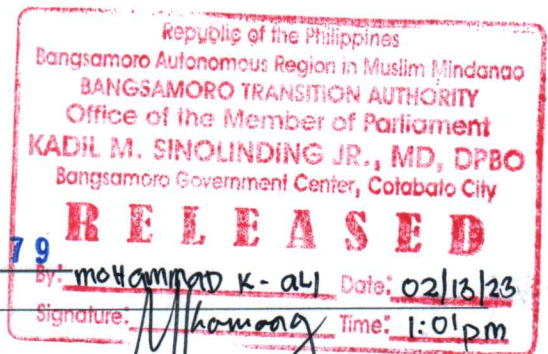 Republic of the Philippines
Bangsamoro Autonomous Region in Muslim Mindanao
BANGSAMORO TRANSITION AUTHORITY
Office of the Member of Parliament
KADIL M. SINOLINDING JR., MD, DPBO
Bangsamoro Government Center, Cotabato City
RELEASED
79
By: MOHAMMAD K-ali Date: 02/13/23
Signature: Time: 1:01pm